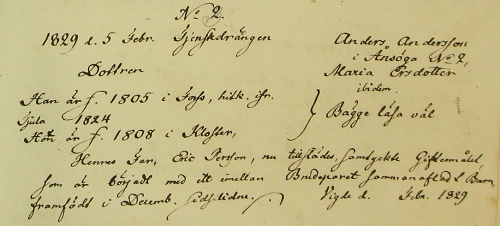 No 2.
1829 d. 5 Febr. Tjenstedrängen Anders Andersson
i Ansöga No 2,
Dottren Maria Ersdotter
ibidem.
Han är f. 1805 i Forss, hitk. ifr.
Sjula 1824
Bägge läsa väl
Hon är f. 1808 i Kloster,
Hennes Far, Eric Person, nu tillstädes, samtyckte Giftermålet,
som är börjadt med ett imellan Brudparet sammanafladt Barn,
framfödt i Decemb. sidstledne. Vigde d. Febr. 1829